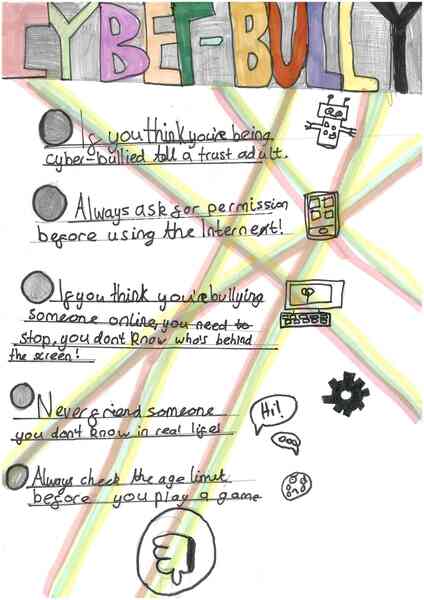 CYBER-BULLY
If you think you're being
cyber-bullied tell a trust adult.
Always ask for permission
before using the Internet!
If you think you're bullying
someone online, you need to
stop, you dont know who's behind
the screen!
Never friend someone
you don't know in real life!
Hi!
Always check the age limit
before you play a game